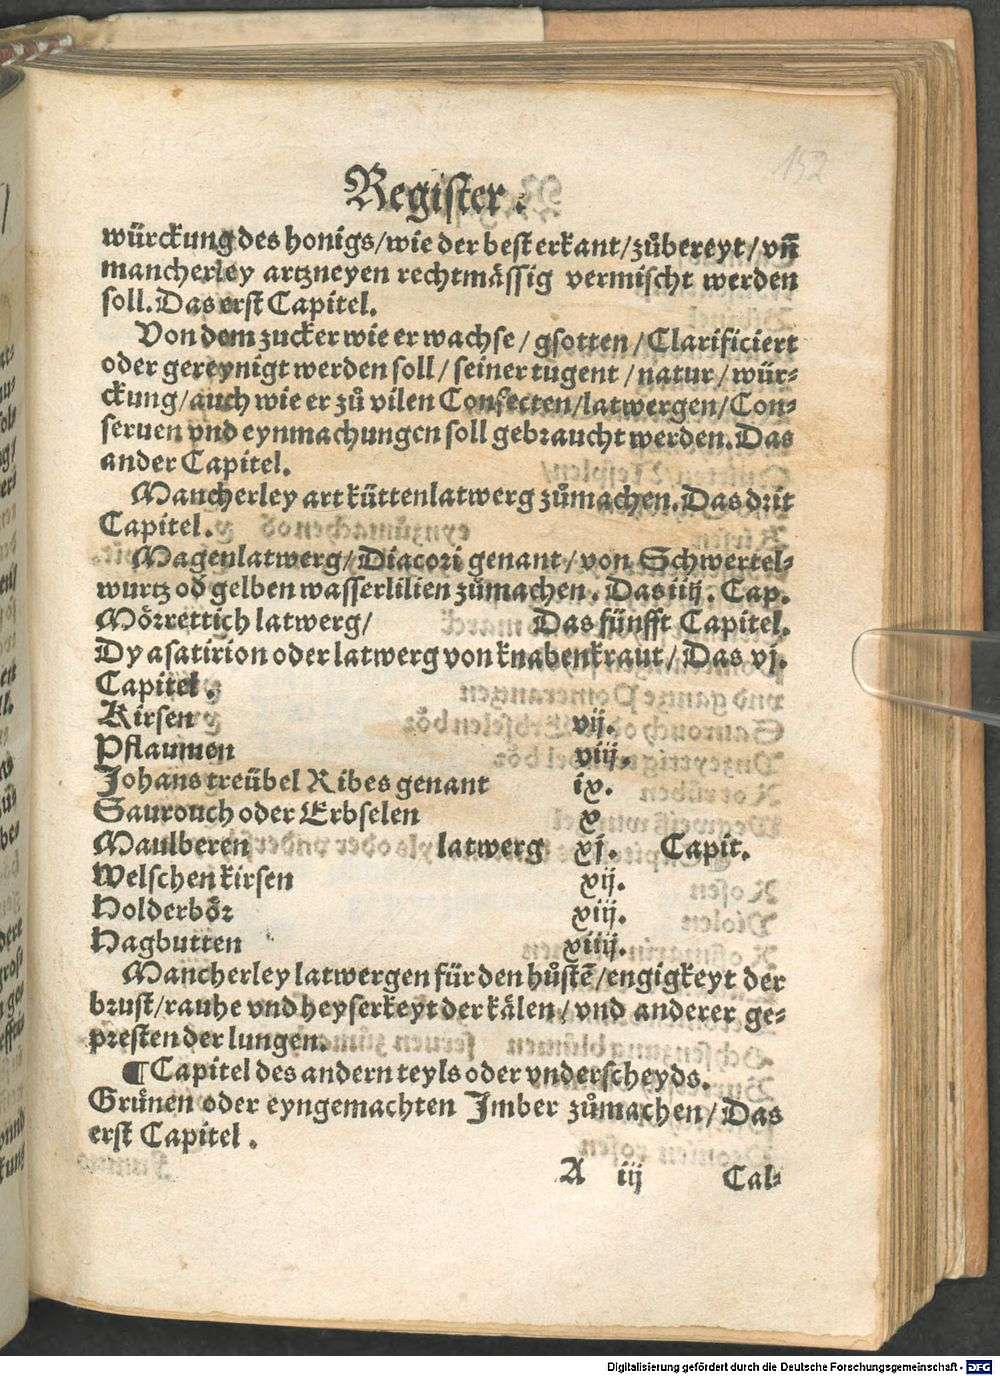 152
Register.
würckung des honigs/wie der best erkant/zůbereyt/vnñ
mancherley artzneyen rechtmässig vermischt werden
soll. Das erst Capitel.
Von dem zucker wie er wachse/gsotten/Clarificiert
oder gereynigt werden soll/seiner tugent/natur/wür⸗
ckung/auch wie er zů vilen Confecten/latwergen/Con⸗
seruen vnd eynmachungen soll gebraucht werden. Das
ander Capitel.
Mancherley art küttenlatwerg zůmachen. Das drit
Capitel.
Magenlatwerg/Diacori genant/von Schwertel⸗
wurtz od̃ gelben wasserlilien zůmachen. Das iiij. Cap.
Mörrettich latwerg/ Das fünfft Capitel.
Dyasatirion oder latwerg von knabenkraut/Das vj.
Capitel.
Kirsen vij.
Pflaumen viij.
Johans treübel Ribes genant ix.
Saurouch oder Erbselen x
Maulberen latwerg xj. Capit.
Welschen kirsen xij.
Holderbör xiij.
Hagbutten xiiij.
Mancherley latwergen für den hůstẽ/engigkeyt der
brust/rauhe vnd heyserkeyt der kälen/vnd anderer ge⸗
presten der lungen.
¶Capitel des andern teyls oder vnderscheyds.
Grünen oder eyngemachten Jmber zůmachen/Das
erst Capitel.
A iij Cal⸗
Digitalisierung gefördert durch die Deutsche Forschungsgemeinschaft - DFG